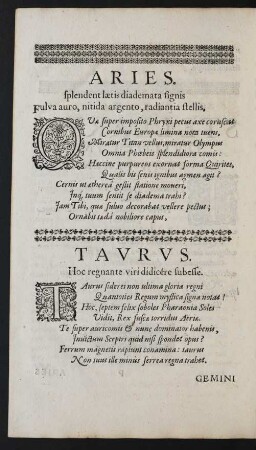 ARIES.
splendent lætis diademata signis
fulva auro, nitida argento, radiantia stellis,
QUa super imposito Phryxi pecus axe coruscat
Cornibus Europa limina nota tuens,
Miratur Titan vellus, miratur Olympus
Omnia Phœbeis splendidiora comis:
Huccine purpureos exornat forma Quirites,
Qualis bis senis ignibus agmen agit?
Cernis ut æthereâ gestit statione moveri,
Inq́; tuum seniis se diadema trahi?
Jam Tibi, quæ fulvo decorabat vellere pectus,
Ornabit tædâ nobiliore caput,
TAVRVS.
Hoc regnante viri didicêre subesse.
TAurus siderei non ultima gloria regni
Quantovis Regum mystica signa notat?
Hoc, septem felix soboles Pharaonia Soles
Vidit, Rex fusca torridus Aeria.
Te super auricomis & nunc dominatur habenis,
Invictum Sceptri quid nisi spondet opus?
Ferrum magnetis rapiunt conamina: taurus
Non suus ille minus ferrea regna trahet.
GEMINI